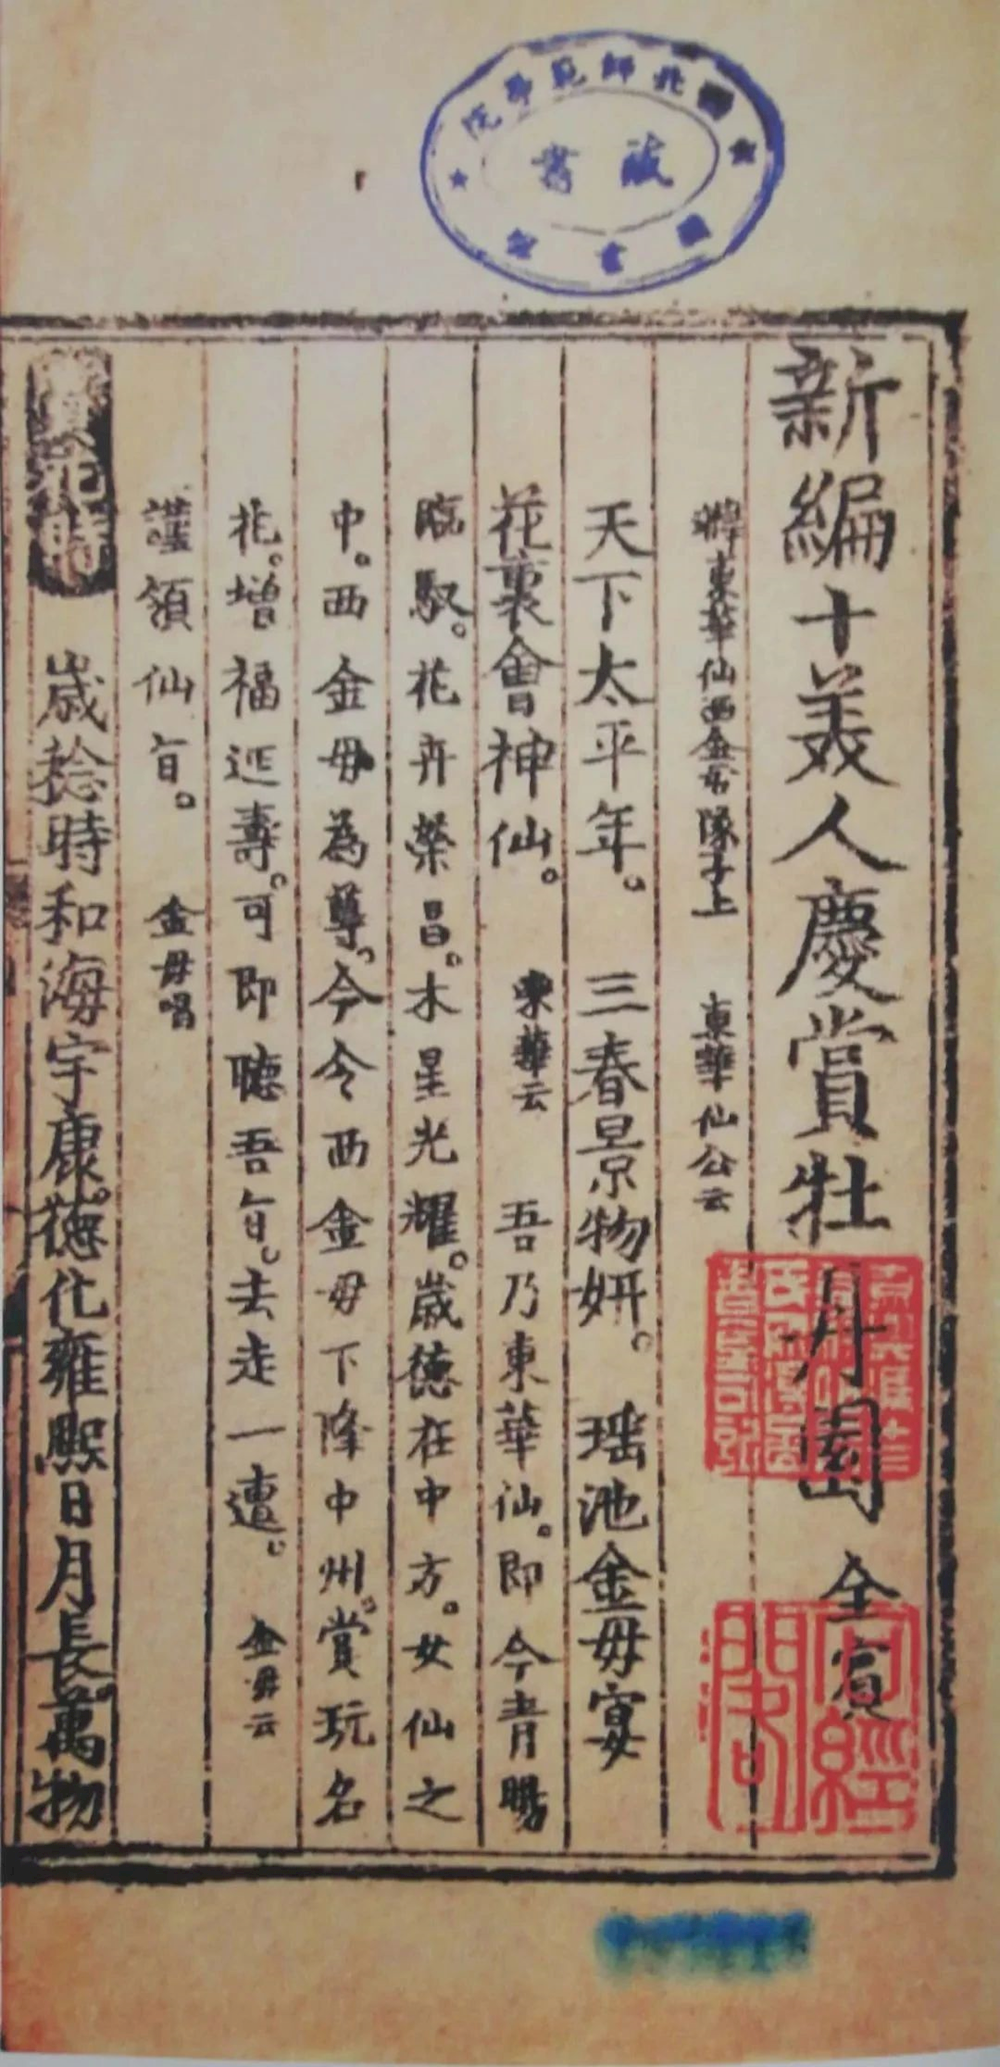 師範學院
藏書
新編十美人慶賞牡丹園 全賓
辦東華仙西金母隊子上 東華仙公云
天下太平年。 三春景物妍。 瑶池金母宴
花裏會神仙。 東華云 吾乃東華仙。即今青暘
臨馭。花卉榮昌。木星光耀。歲德在中方。女仙之
中。西金母為尊。今令西金母下降中州。賞玩名
花。增福延壽。可即聽吾旨。去走一遭。 金母云
謹領仙旨。 金母唱
花時 歲稔時和海宇康。德化雍熙日月長。萬物